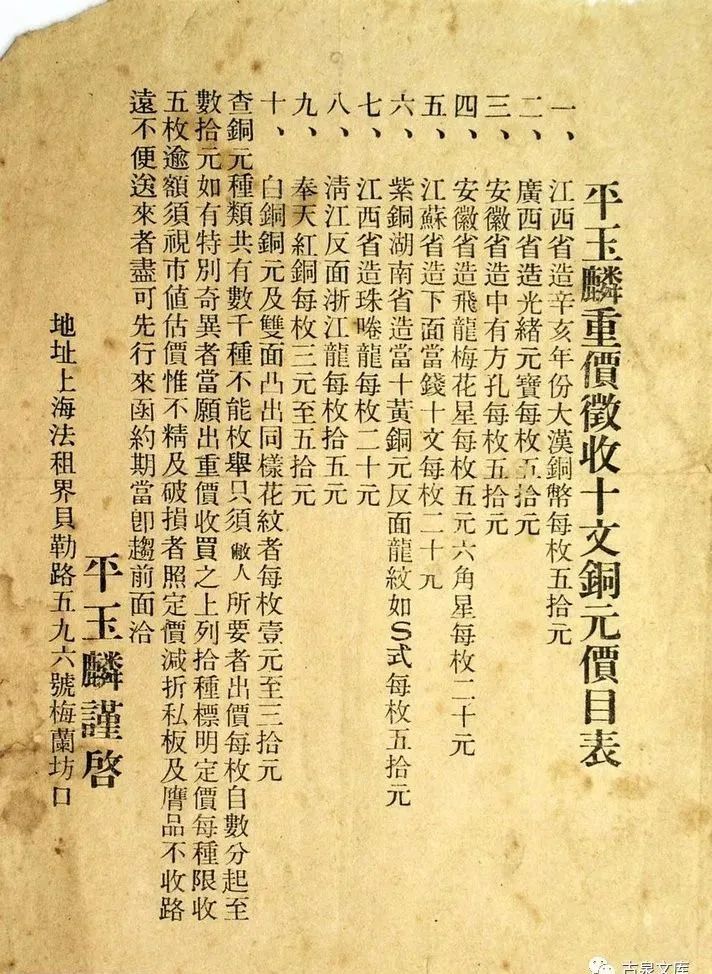 平玉麟重價徵收十文銅元價目表
一、江西省造辛亥年份大漢銅幣每枚五拾元
二、廣西省造光緒元寶每枚五拾元
三、安徽省造中有方孔每枚五拾元
四、安徽省造飛龍梅花星每枚五元六角星每枚二十元
五、江蘇省造下面當錢十文每枚二十元
六、紫銅湖南省造當十黃銅元反面龍紋如S式每枚五拾元
七、江西省造珠啳龍每枚二十元
八、清江反面浙江龍每枚拾五元
九、奉天紅銅每枚三元至五拾元
十、白銅銅元及雙面凸出同樣花紋者每枚壹元至三拾元
查銅元種類共有數千種不能枚舉只須敝人所要者出價每枚自數分起至
數拾元如有特別奇異者當願出重價收買之上列拾種標明定價每種限收
五枚逾額須視市値估價惟不精及破損者照定價減折私板及膺品不收路
遠不便送來者盡可先行來函約期當卽趨前面洽
平玉麟謹啓
地址上海法租界貝勒路五九六號梅蘭坊口
古泉文库